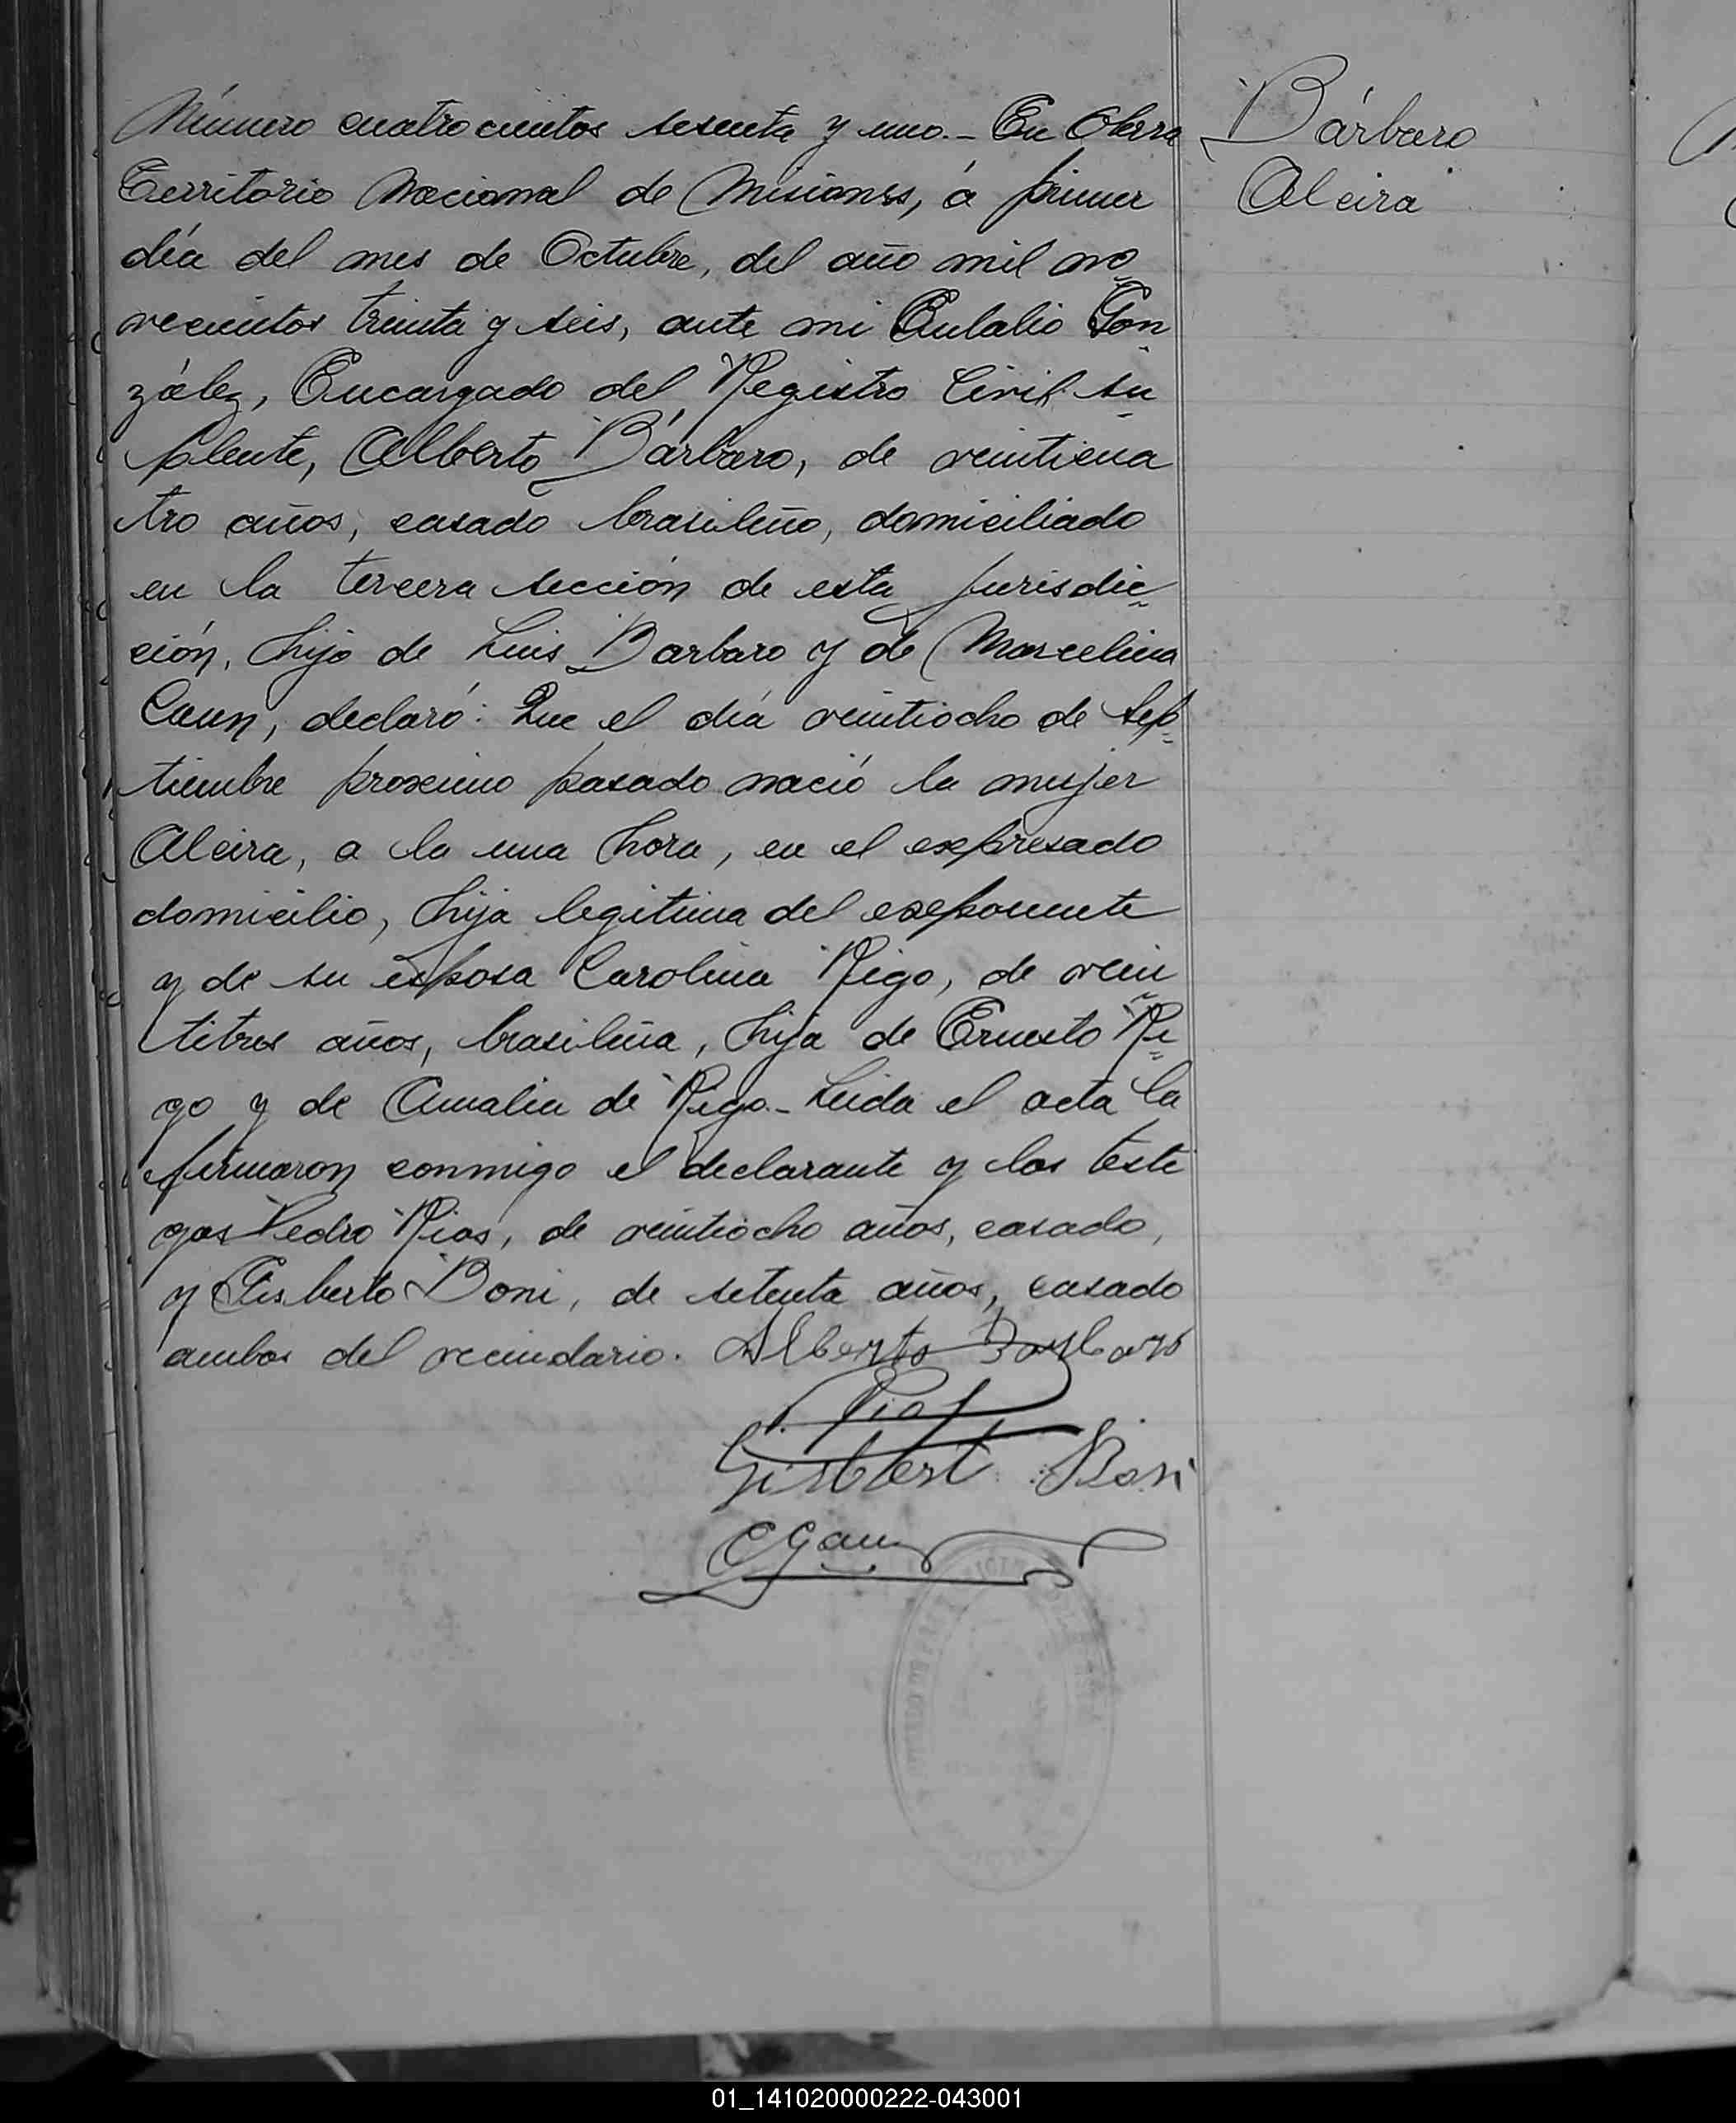 Número cuatrocientos sesenta y uno.- En Oberá
Territorio Nacional de Misiones, á primer
día del mes de Octubre, del año mil no
vecientos treinta y seis, ante mi Eulalio Gon
zález, Encargado del Registro Civil su
plente, Alberto Bárbaro, de veinticua
tro años, casado brasileño, domiciliado
en la tercera sección de esta jurisdic
ción, hijo de Luis Barbaro y de Marcelina
Caun, declaró: Que el día veintiocho de Sep
tiembre proximo pasado nació la mujer
Alcira, a la una hora, en el expresado
domicilio, hija legitima del exponente
y de su esposa Carolina Rigo, de vein
titres años, brasileña, hija de Ernesto Ri
go y de Amalia de Rigo.- Leida el acta la
firmaron conmigo el declarante y los testi
gos Pedro Rios, de veintiocho años, casado,
y Gisberto Boni, de setenta años, casado
ambos del vecindario. Alberto Barbaro
P. Rios
Gisbert Boni
EGon
Bárbaro
Alcira
01_141020000222-043001